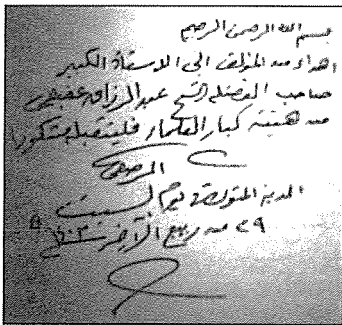 بسم الله الرحمن الرحيم
اهداء من المؤلف الى الاستاذ الكبير
صاحب الفضيلة الشيخ عبد الرزاق عفيفي
من هيئة كبار العلماء فليتقبله مشكورا
المدينة المنورة يوم السبت
٢٩ من ربيع الآخر سنة